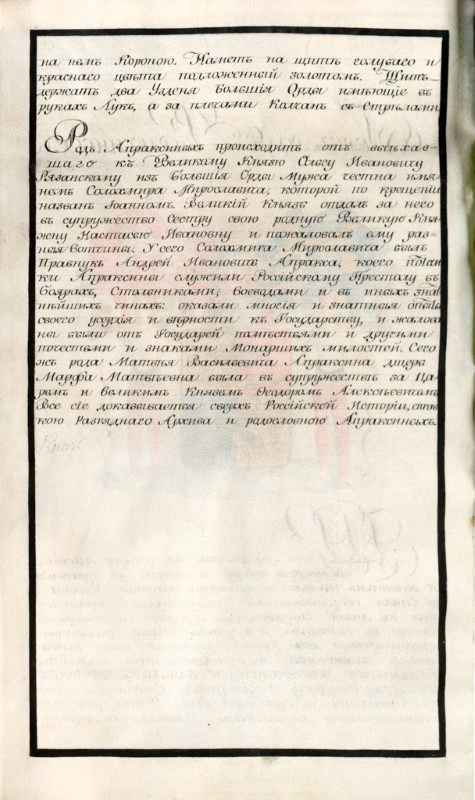 на немъ Короною. Наметъ на щитѣ голубаго и
краснаго цвѣта подложенный золотомъ. Щитъ
держатъ два Узденя Большія Орды имѣющіе въ
рукахъ Лукъ, а за плечами Колчанъ съ Стрѣлами
Родъ Апраксиныхъ происходитъ отъ выѣхав-
шаго къ Великому Князю Олегу Ивановичу
Рязанскому изъ Большія Орды Мужа честна имя-
немъ Солохмира Мирославича; которой по крещеніи
названъ Іоанномъ. Великій Князь отдалъ за него
въ супружество Сестру свою родную Великую Кня-
жну Настасею Ивановну и пожаловалъ ему раз-
ныя Вотчины. У сего Солохмира Мирославича былъ
Правнукъ Андрей Ивановичъ Апракса, коего потом-
ки Апраксины служили Россійскому Престолу въ
Боярахъ, Стольниками, воеводами и въ иныхъ знат-
нѣйшихъ чинахъ: оказали многія и знатныя опыты
своего усердія и вѣрности къ Государству, и жалова-
ны были отъ Государей помѣстьями и другими
почестьми и знаками Монаршихъ милостей. Сего
жъ рода Матвѣя Василевича Апраксина дщерь
Марфа Матвѣевна была въ супружествѣ за Ца-
ремъ и Великимъ Княземъ Ѳеодоромъ Алексѣевичемъ.
Все сіе доказывается сверхъ Россійской Исторіи, справ-
кою Разряднаго Архива и родословною Апраксиныхъ.